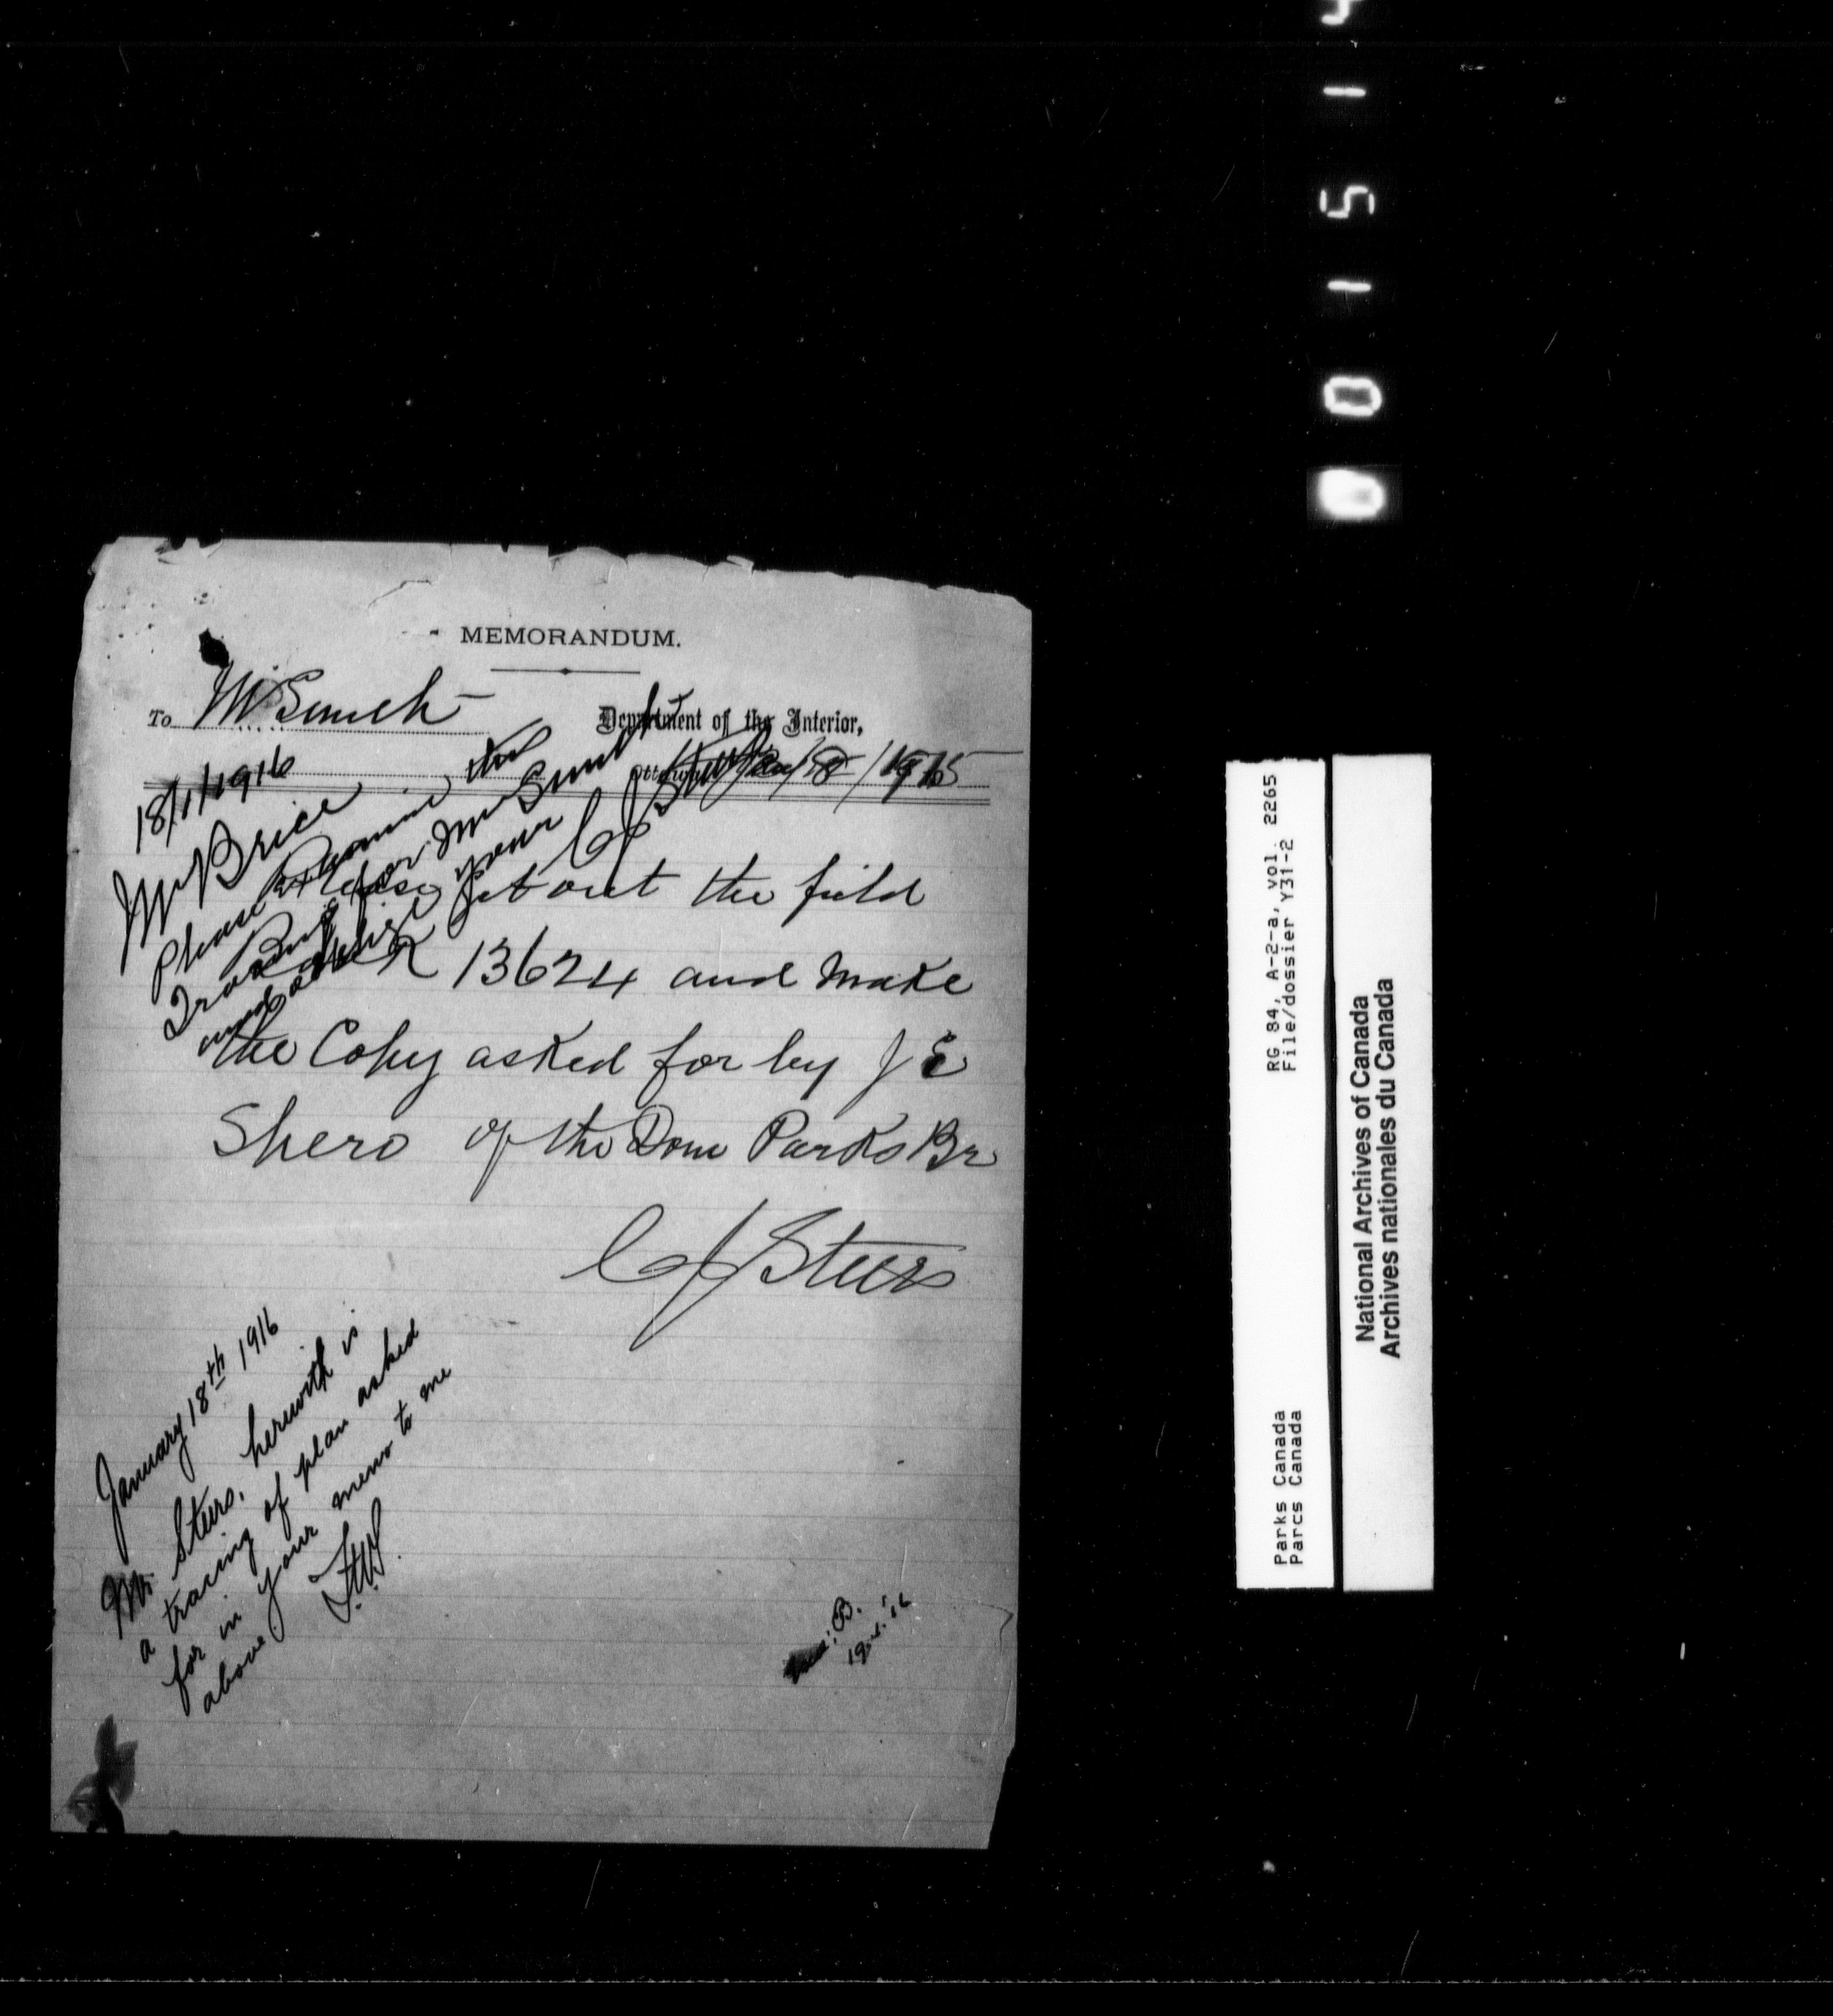 MEMORANDUM.
To Mr Smith
Department of the Interior,
Ottawa, 18/1/1915
Please get out the field
Book 13624 and Make
the Copy asked for by J E
Shero of the Dom Parks Br
C J Steers
18/1/1916
Mr Brice
Please examine this
Tracing for Mr Smith
and oblige your
C J Steers
January 18th 1916
Mr. Steers, herewith is
a tracing of plan asked
for in your memo to me
above.
F.W.S.
B.
19.1.'16
Parks Canada
Parcs Canada
RG 84, A-2-a, vol. 2265
File/dossier Y31-2
National Archives of Canada
Archives nationales du Canada
0 0 1 5 1